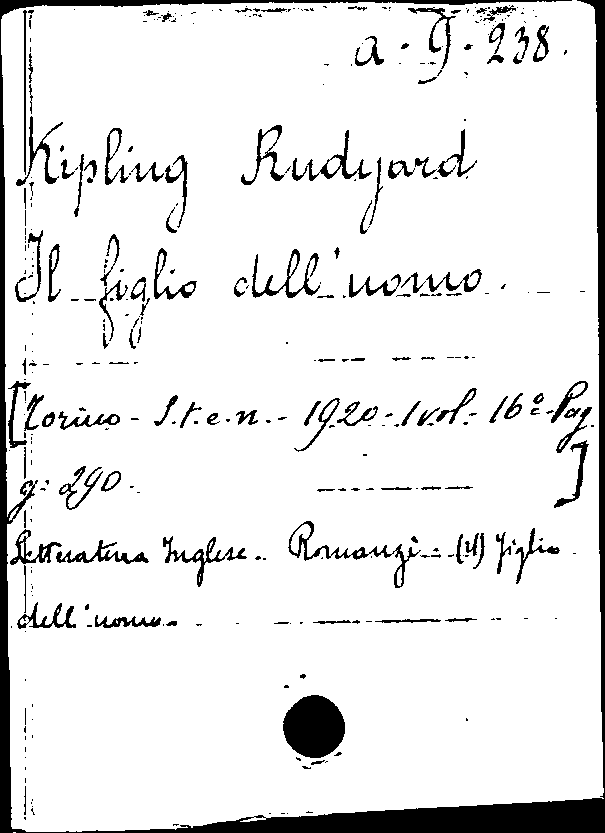 a. 9. 238.
Kipling Rudyard
Il figlio dell'uomo.
[Torino - S.t.e.n. - 1920 - 1 vol. - 16° - Pag
g: 290. ]
Letteratura Inglese. Romanzi - (Il) Figlio
dell'uomo.